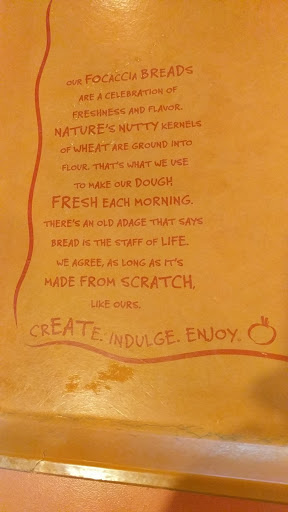 OUR FOCACCIA BREADS
ARE A CELEBRATION OF
FRESHNESS AND FLAVOR.
NATURE'S NUTTY KERNELS
OF WHEAT ARE GROUND INTO
FLOUR. THAT'S WHAT WE USE
TO MAKE OUR DOUGH
FRESH EACH MORNING.
THERE'S AN OLD ADAGE THAT SAYS
BREAD IS THE STAFF OF LIFE.
WE AGREE, AS LONG AS IT'S
MADE FROM SCRATCH,
LIKE OURS.
CREATE. INDULGE. ENJOY.